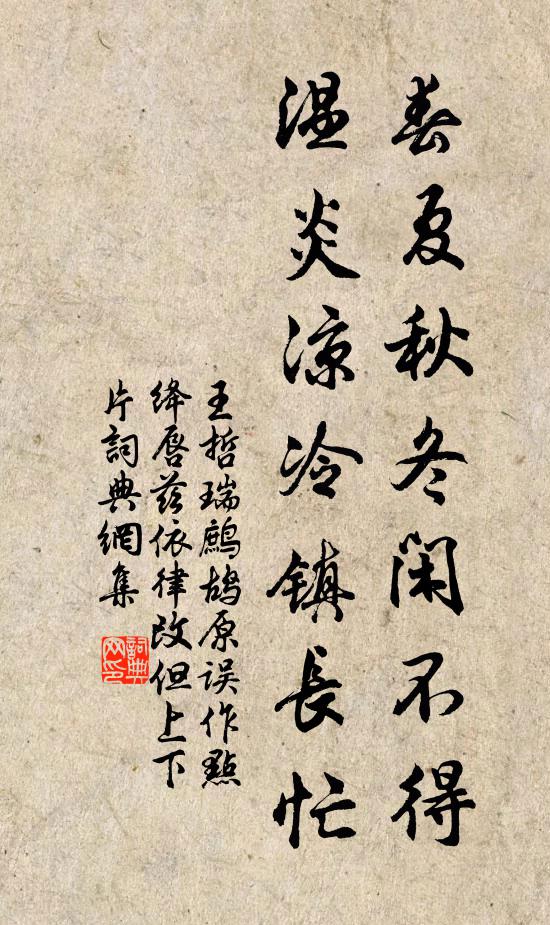 春夏秋冬閑不得
溫炎涼冷鎮長忙
王哲瑞鷓鴣原误作點
绛唇茲依律改但上下
片詞典網集
詞典网印